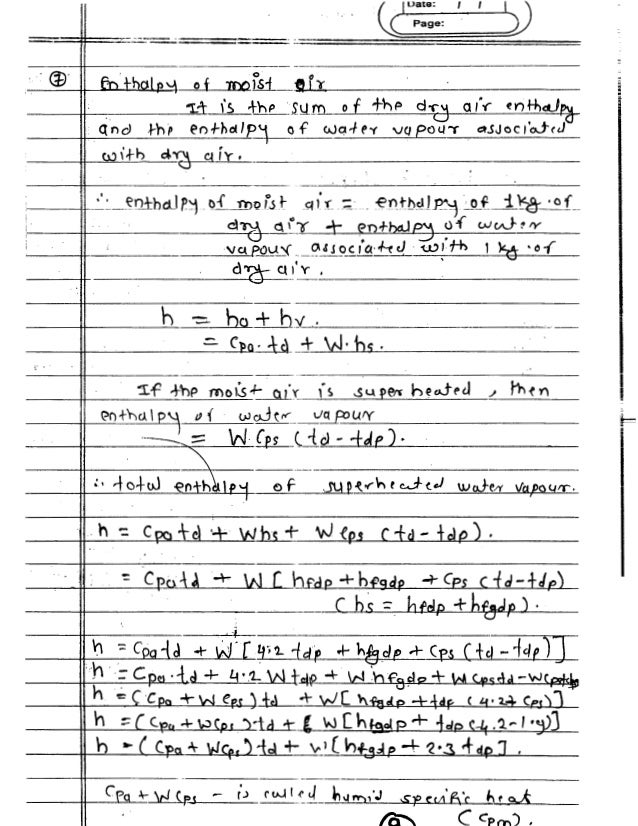 Date: / /
Page:
⑦ Enthalpy of moist air
It is the sum of the dry air enthalpy
and the enthalpy of water vapour associated
with dry air.
∴ enthalpy of moist air = enthalpy of 1kg of
dry air + enthalpy of water
vapour associated with 1 kg of
dry air.
h = ha + hv.
= Cpa. td + W. hs.
If the moist air is superheated, then
enthalpy of water vapour
= W. Cps (td - tdp).
∴ total enthalpy of superheated water vapour.
h = Cpa td + Whs + W Cps (td - tdp).
= Cpa td + W [ hfdp + hfgdp + Cps (td - tdp)
(hs = hfdp + hfgdp).
h = Cpa td + W [ 4.2 tdp + hfgdp + Cps (td - tdp)]
h = Cpa. td + 4.2 W tdp + W hfgdp + W Cps td - W Cps tdp
h = (Cpa + W Cps) td + W [ hfgdp + tdp (4.2 - Cps)]
h = (Cpa + W Cps) td + W [hfgdp + tdp (4.2 - 1.9)]
h = (Cpa + W Cps) td + W [hfgdp + 2.3 tdp].
Cpa + W Cps - is called humid specific heat
(Cpm).
9